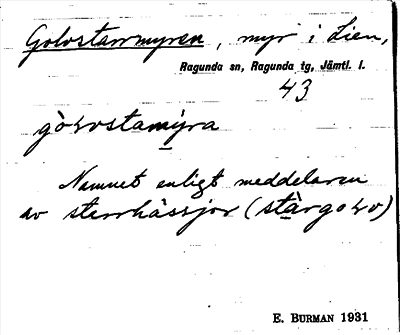 Golostarrmyren, myr i Lien,
Ragunda sn, Ragunda tg, Jämtl. l.
43
gòɫostamýra
Namnet enligt meddelaren
av starrhässjor (stàrgoɫo)
E. BURMAN 1931